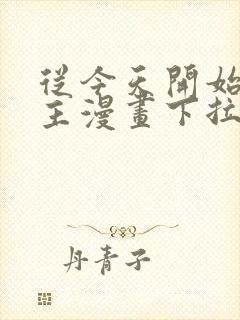 從今天開始
主漫畫下拉
丹青子